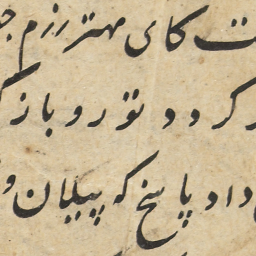 ت کای مهتر رزم ج
کردد تو رو باز
داد پاسخ که پیلان و